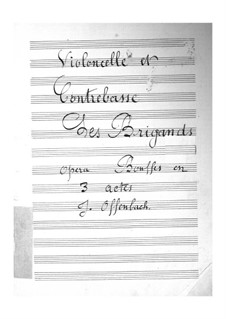 Violoncelle et
Contrebasse
Les Brigands
Opera Bouffes en
3 actes
J. Offenbach.